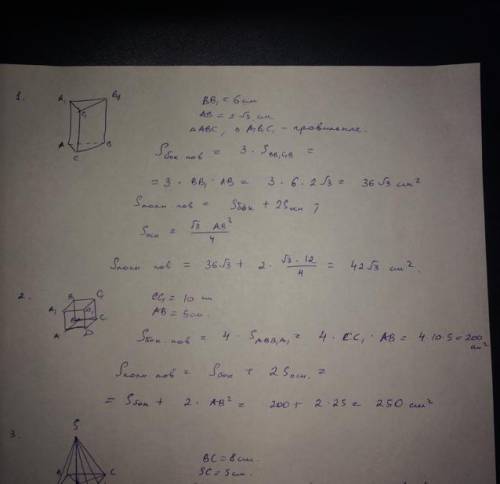 1.
A₁ B₁
C₁
A B
C
BB₁ = 6 см
AB = 2√3 см.
△ABC, △A₁B₁C₁ – правильные.
Sбок пов = 3 · SBB₁C₁B =
= 3 · BB₁ · AB = 3 · 6 · 2√3 = 36√3 см²
Sполн пов = Sбок + 2Sосн ;
Sосн = √3 · AB² / 4
Sполн пов = 36√3 + 2 · √3 · 12 / 4 = 42√3 см².
2.
B₁ C₁
A₁ D₁
B C
A D
CC₁ = 10 см
AB = 5 см.
Sбок пов = 4 · SABB₁A₁ = 4 · CC₁ · AB = 4·10·5 = 200 см²
Sполн пов = Sбок + 2Sосн. =
= Sбок + 2 · AB² = 200 + 2 · 25 = 250 см²
3.
S
A C
BC = 8 см.
SC = 5 см.